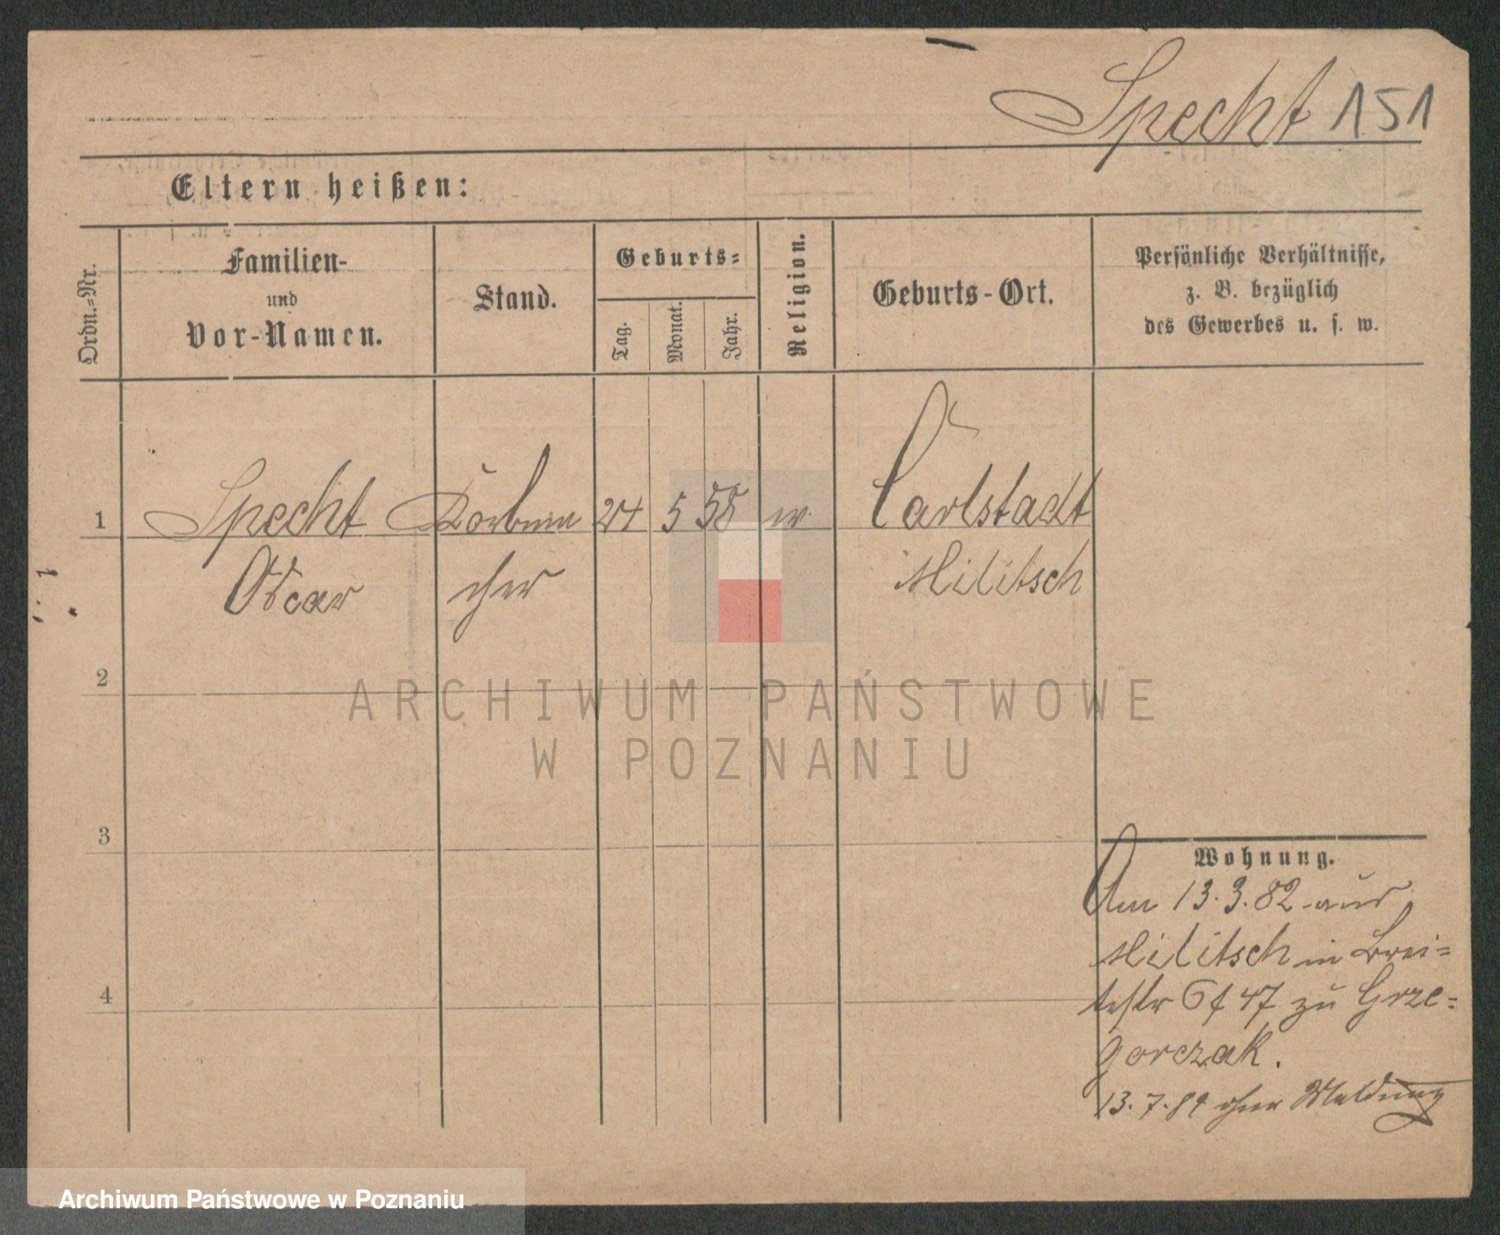 Specht 151
Eltern heißen:
Ordn.-Nr.
Familien-
und
Vor-Namen.
Stand.
Geburts-
Tag.
Monat.
Jahr.
Religion.
Geburts-Ort.
Persönliche Verhältnisse,
z. B. bezüglich
des Gewerbes u. s. w.
1 Specht Korbma 24 5 55 Carlstadt
Oscar cher Militsch
2
3
4
Wohnung.
Am 13.3.82 aus
Militsch in Brei-
testr 47 zu Grze-
gorczak.
13.7.89 ohne Meldung
ARCHIWUM PAŃSTWOWE
W POZNANIU
Archiwum Państwowe w Poznaniu